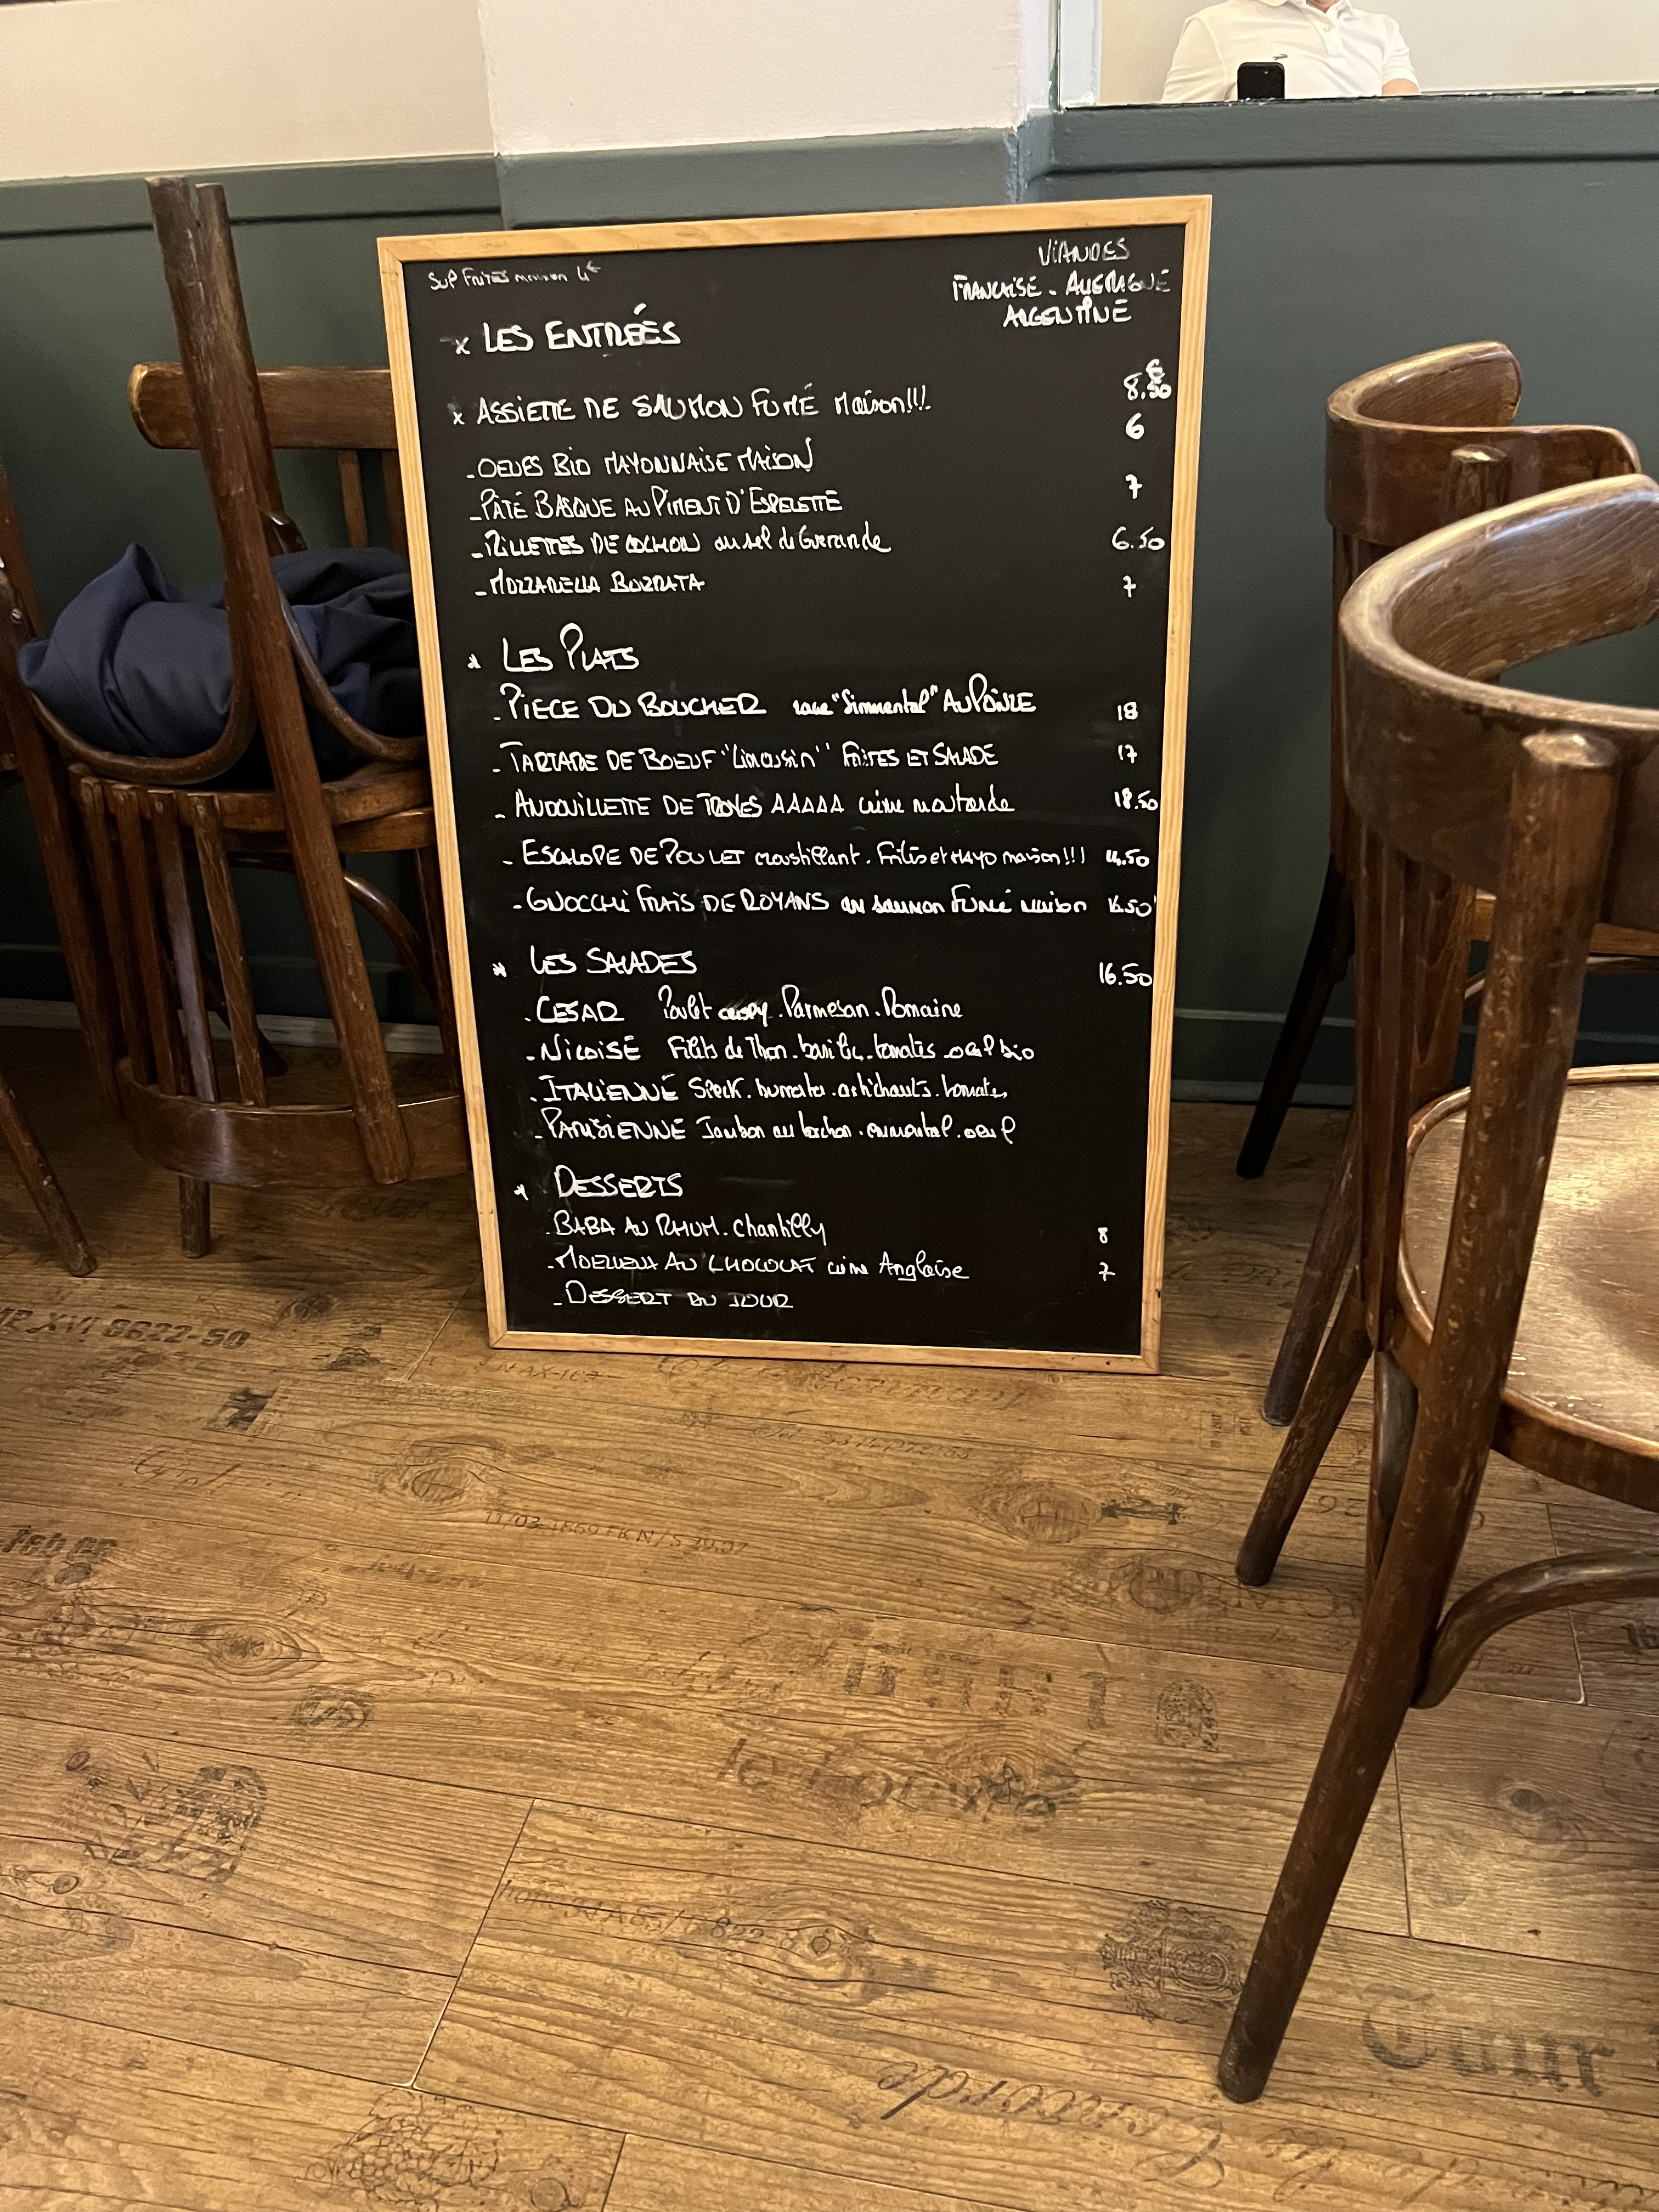 Sup Frites maison 4€
VIANDES
FRANCAISE - ALLEMAGNE
ARGENTINE
x LES ENTRÉES
x ASSIETTE DE SAUMON FUMÉ Maison!!! 8.50 €
- OEUFS BIO MAYONNAISE MAISON 6
- PÂTÉ BASQUE AU PIMENT D'ESPELETTE 7
- RILLETTES DE COCHON au sel de Guerande 6.50
- MOZZARELLA BURRATA 7
* LES PLATS
- PIECE DU BOUCHER race "Simmental" AU POIVRE 18
- TARTARE DE BOEUF "Limousin" FRITES ET SALADE 17
- ANDOUILLETTE DE TROYES AAAAA crème moutarde 18.50
- ESCALOPE DE POULET croustillant. Frites et MAYO maison!!! 14.50
- GNOCCHI FRAIS DE ROYANS au saumon Fumé maison 16.50
* LES SALADES 16.50
. CESAR Poulet crispy. Parmesan. Romaine
- NICOISE Filets de Thon. basilic. tomates. oeuf bio
. ITALIENNE Speck. burrata. artichauts. tomates
- PARISIENNE Jambon au torchon. emmental. oeuf
* DESSERTS
. BABA AU RHUM. Chantilly 8
- MOELLEUX AU CHOCOLAT crème Anglaise 7
- DESSERT DU JOUR
11/03-1869
Concorde
Tour